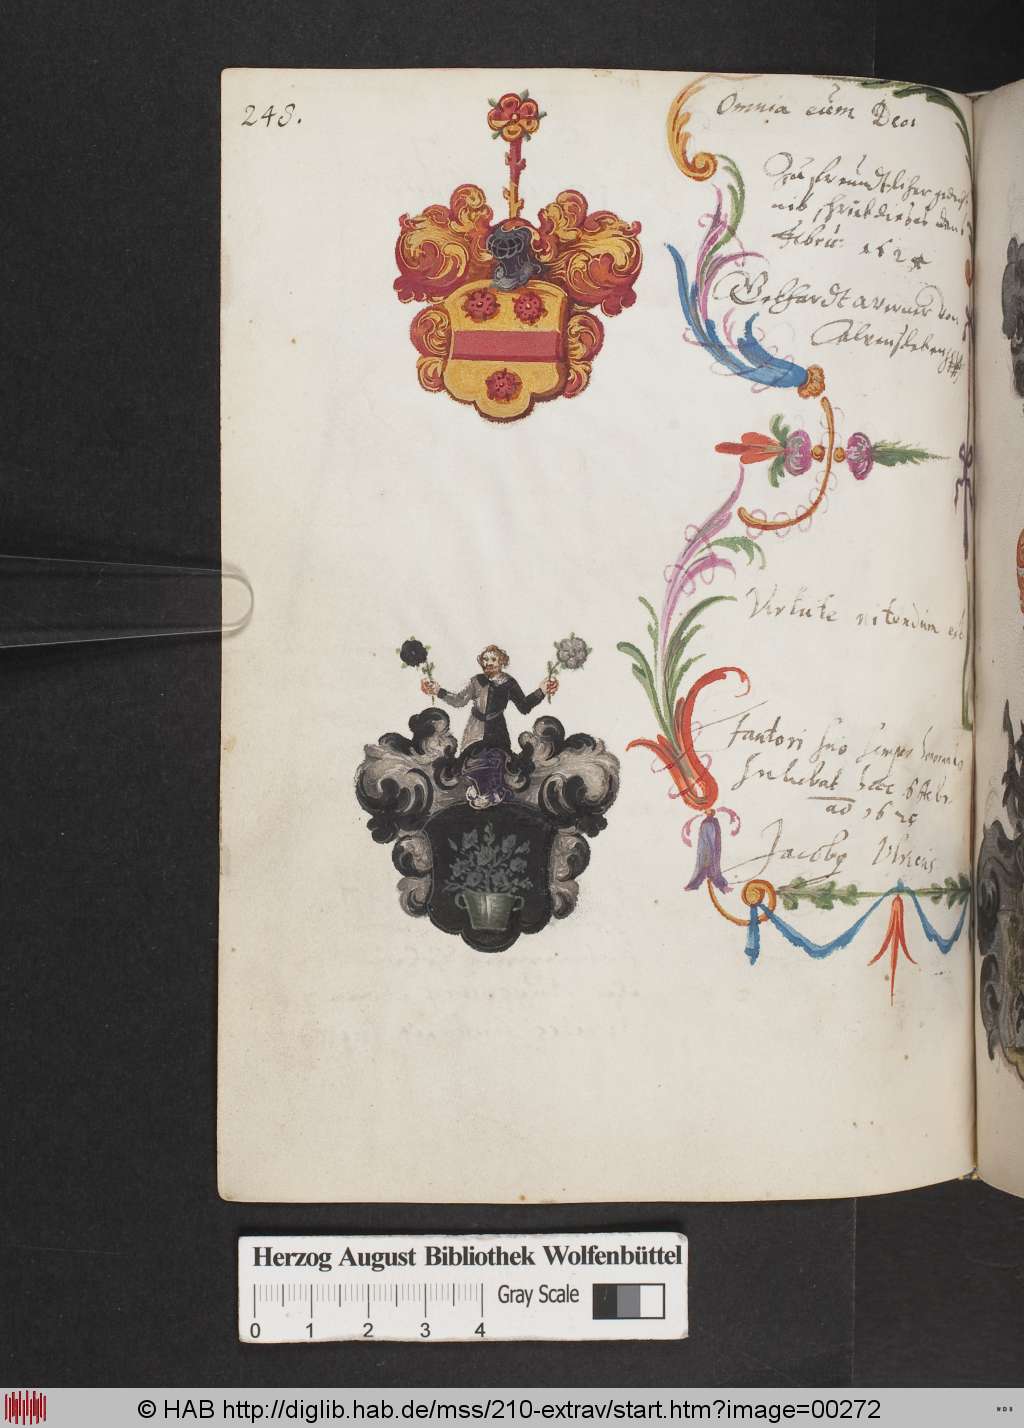 248.
Omnia cum Deo.
Zu freundtlicher gedecht
nis schrieb dieses den
Febru: 162
Gebhardt a von
Alvensleben
Virtute nitendum est
fautori suo semper
scribebat hæc 6 Febr.
aō 162
Jacobg
Herzog August Bibliothek Wolfenbüttel
Gray Scale
0 1 2 3 4
© HAB http://diglib.hab.de/mss/210-extrav/start.htm?image=00272